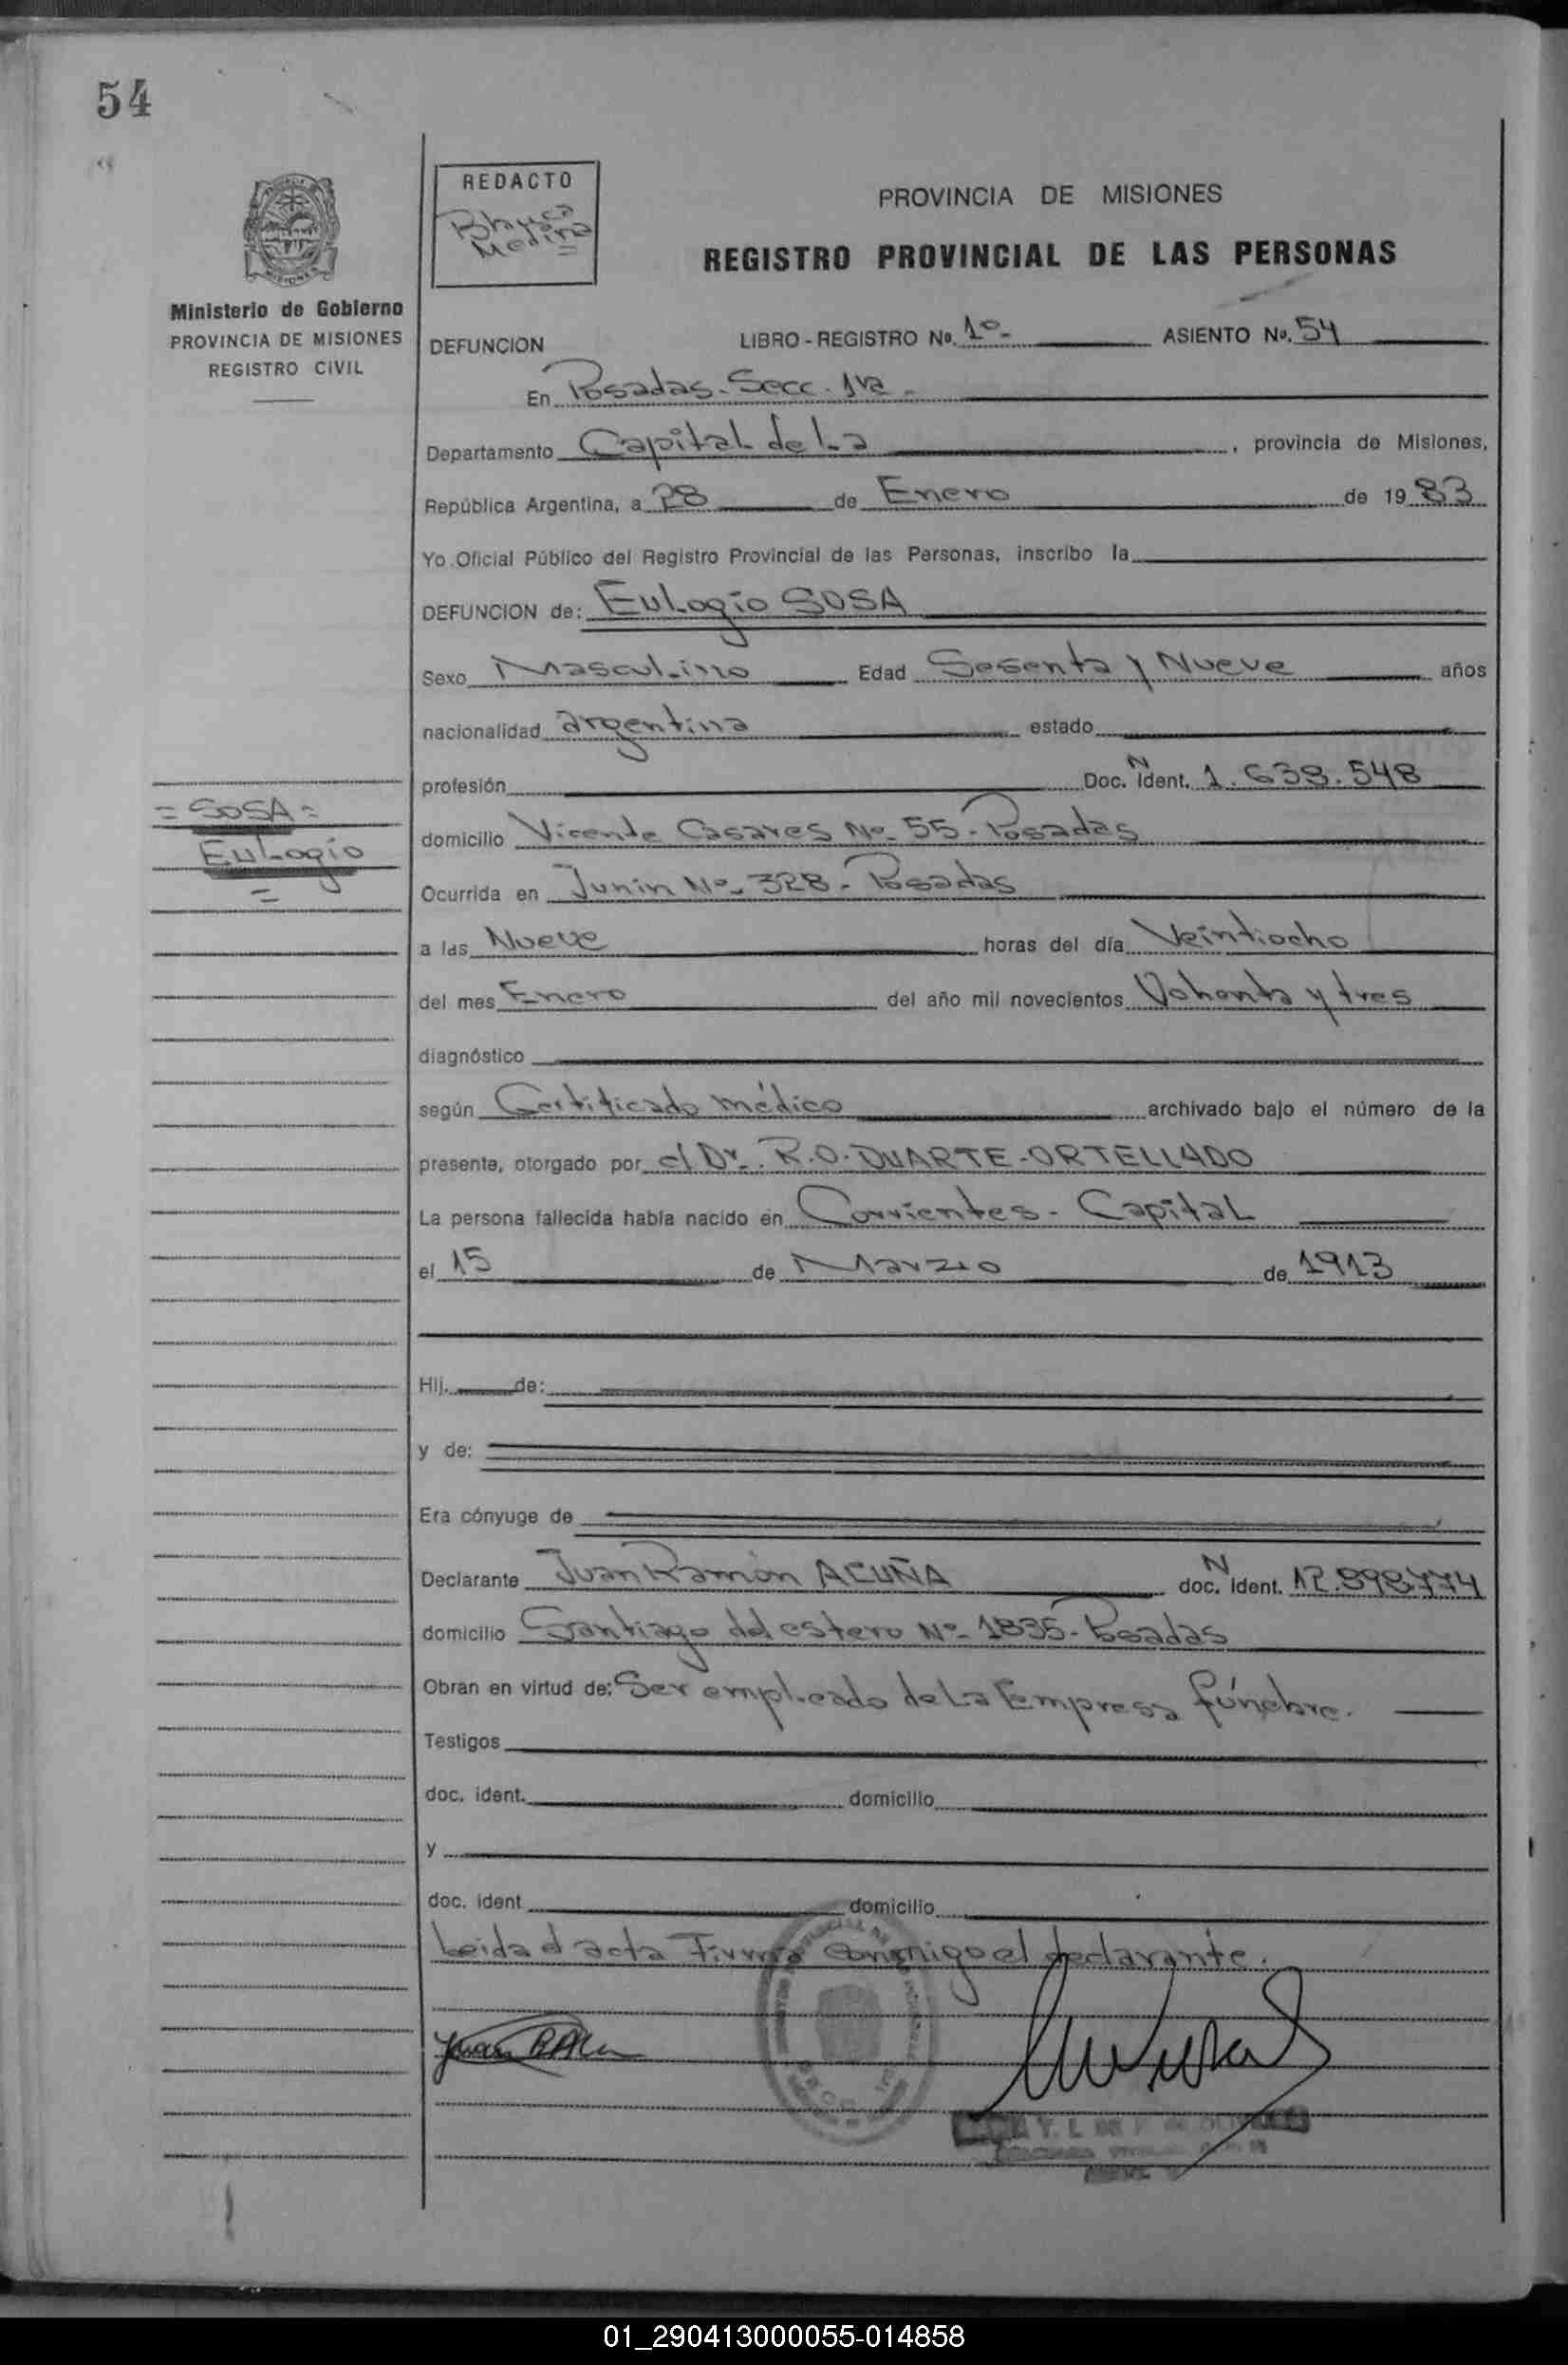 54
REDACTO
Medina
PROVINCIA DE MISIONES
REGISTRO PROVINCIAL DE LAS PERSONAS
Ministerio de Gobierno
PROVINCIA DE MISIONES
REGISTRO CIVIL
DEFUNCION LIBRO - REGISTRO No. 1º- ASIENTO No. 54
En Posadas - Secc. 1ra -
Departamento Capital de La , provincia de Misiones,
República Argentina, a 28 de Enero de 19 83
Yo Oficial Público del Registro Provincial de las Personas, inscribo la
DEFUNCION de: Eulogio SOSA
Sexo Masculino Edad Sesenta y Nueve años
nacionalidad argentina estado
profesión Doc. N Ident. 1.638.548
= SOSA =
Eulogio
=
domicilio Vicente Casares Nº 55 - Posadas
Ocurrida en Junin Nº- 328 - Posadas
a las Nueve horas del día Veintiocho
del mes Enero del año mil novecientos Ochenta y tres
diagnóstico
según Certificado médico archivado bajo el número de la
presente, otorgado por el Dr. R.O. DUARTE-ORTELLADO
La persona fallecida había nacido en Corrientes - Capital
el 15 de Marzo de 1913
Hij. de:
y de:
Era cónyuge de
Declarante Juan Ramón ACUÑA doc. N Ident. 12.898.774
domicilio Santiago del estero Nº- 1835 - Posadas
Obran en virtud de: Ser empleado de La Empresa fúnebre.
Testigos
doc. ident. domicilio
y
doc. ident domicilio
Leida el acta Firma conmigo el declarante.
01_290413000055-014858